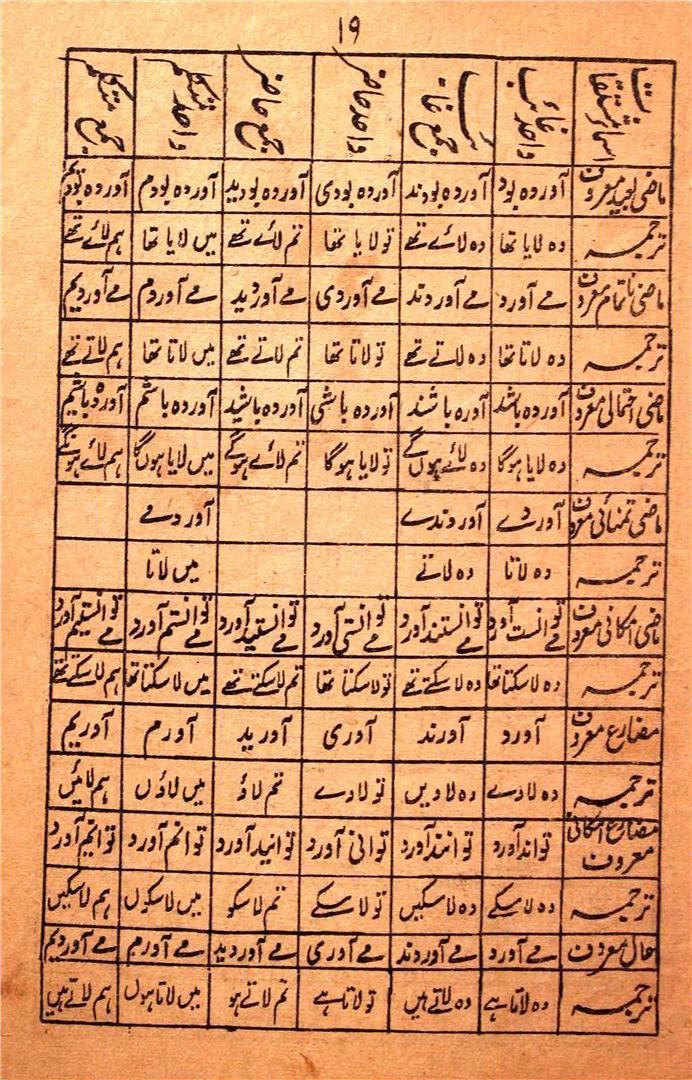 ۱۹
اسمائے مشتقات | واحد غائب | جمع غائب | واحد حاضر | جمع حاضر | واحد متکلم | جمع متکلم
ماضی بعید معروف | آوردہ بود | آوردہ بودند | آوردہ بودی | آوردہ بودید | آوردہ بودم | آوردہ بودیم
ترجمہ | وہ لایا تھا | وہ لائے تھے | تو لایا تھا | تم لائے تھے | میں لایا تھا | ہم لائے تھے
ماضی ناتمام معروف | مے آورد | مے آوردند | مے آوردی | مے آوردید | مے آوردم | مے آوردیم
ترجمہ | وہ لاتا تھا | وہ لاتے تھے | تو لاتا تھا | تم لاتے تھے | میں لاتا تھا | ہم لاتے تھے
ماضی احتمالی معروف | آوردہ باشد | آورہ باشند | آوردہ باشی | آوردہ باشید | آوردہ باشم | آوردہ باشیم
ترجمہ | وہ لایا ہوگا | وہ لائے ہوں گے | تو لایا ہوگا | تم لائے ہوگے | میں لایا ہوں گا | ہم لائے ہونگے
ماضی تمنائی معروف | آوردے | آوردندے | آوردمے
ترجمہ | وہ لاتا | وہ لاتے | میں لاتا
ماضی امکانی معروف | مے توانست آورد | مے توانستند آورد | مے توانستی آورد | مے توانستید آورد | مے توانستم آورد | مے توانستیم آورد
ترجمہ | وہ لا سکتا تھا | وہ لا سکتے تھے | تو لا سکتا تھا | تم لا سکتے تھے | میں لا سکتا تھا | ہم لا سکتے تھے
مضارع معروف | آورد | آورند | آوری | آورید | آورم | آوریم
ترجمہ | وہ لاوے | وہ لاویں | تو لاوے | تم لاؤ | میں لاؤں | ہم لائیں
مضارع امکانی معروف | تواند آورد | توانند آورد | توانی آورد | توانید آورد | توانم آورد | توانیم آورد
ترجمہ | وہ لا سکے | وہ لا سکیں | تو لا سکے | تم لا سکو | میں لا سکوں | ہم لا سکیں
حال معروف | مے آورد | مے آوردند | مے آوری | مے آوردید | مے آورم | مے آوردیم
ترجمہ | وہ لاتا ہے | وہ لاتے ہیں | تو لاتا ہے | تم لاتے ہو | میں لاتا ہوں | ہم لاتے ہیں